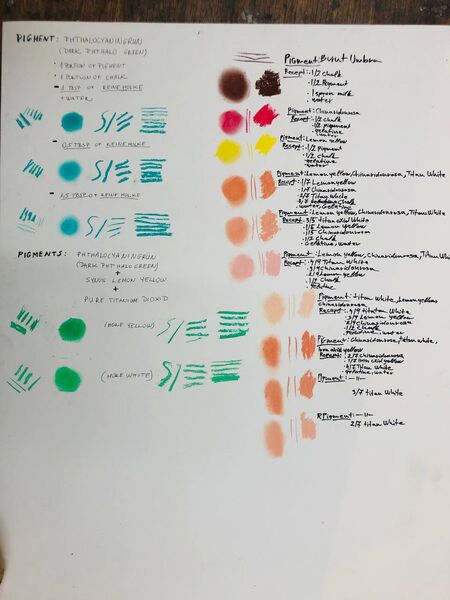 PIGMENT: PHTHALOCYANINGRUN
(DARK PHTHALO GREEN)
· 1 PORTION OF PIGMENT
· 1 PORTION OF CHALK
- 1 TBSP OF REINE MOLKE
+ WATER
- 0,5 TBSP OF REINE MOLKE
- 1,5 TBSP OF REINE MOLKE
PIGMENTS: PHTHALOCYANINGRUN
(DARK PHTHALO GREEN)
+
LEMON YELLOW
+
PURE TITANIUM DIOXID
(MORE YELLOW)
(MORE WHITE)
Pigment: Burnt Umbra
Recept: 1/2 chalk
1/2 Pigment
1 spoon milk
water
Pigment: Chinaridonrosa
Recept: 1/2 chalk
1/2 pigment
gelatine
water
Pigment: Lemon yellow
Recept: 1/2 pigment
1/2 chalk
gelatine
water
Pigment: Lemon yellow, Chinaridonrosa, Titan White
Recept: 1/7 Lemon yellow
1/7 Chinaridonrosa
2/7 Titan White
chalk
water, Gelatine
Pigment: Lemon yellow, Chinaridonrosa, Titan White
Recept: 3/5 titan White
1/5 Lemon yellow
1/5 Chinaridonrosa
1/2 Chalk
Gelatine, water
Pigment: Lemon yellow, Chinaridonrosa, Titan White
Recept: 4/9 Titan White
chinaridonrosa
Lemon yellow
1/2 Chalk
Pigment: titan White, Lemon yellow
chinaridonrosa
Recept: titan White
Lemon yellow
chinaridonrosa
1/2 Chalk
gelatine, water
Pigment: Chinaridonrosa, titan white,
Iron oxid yellow
Recept: chinaridonrosa
iron oxid yellow
4/7 Titan White
gelatine, water
Pigment: -||-
3/7 titan White
Pigment: -||-
2/7 titan White